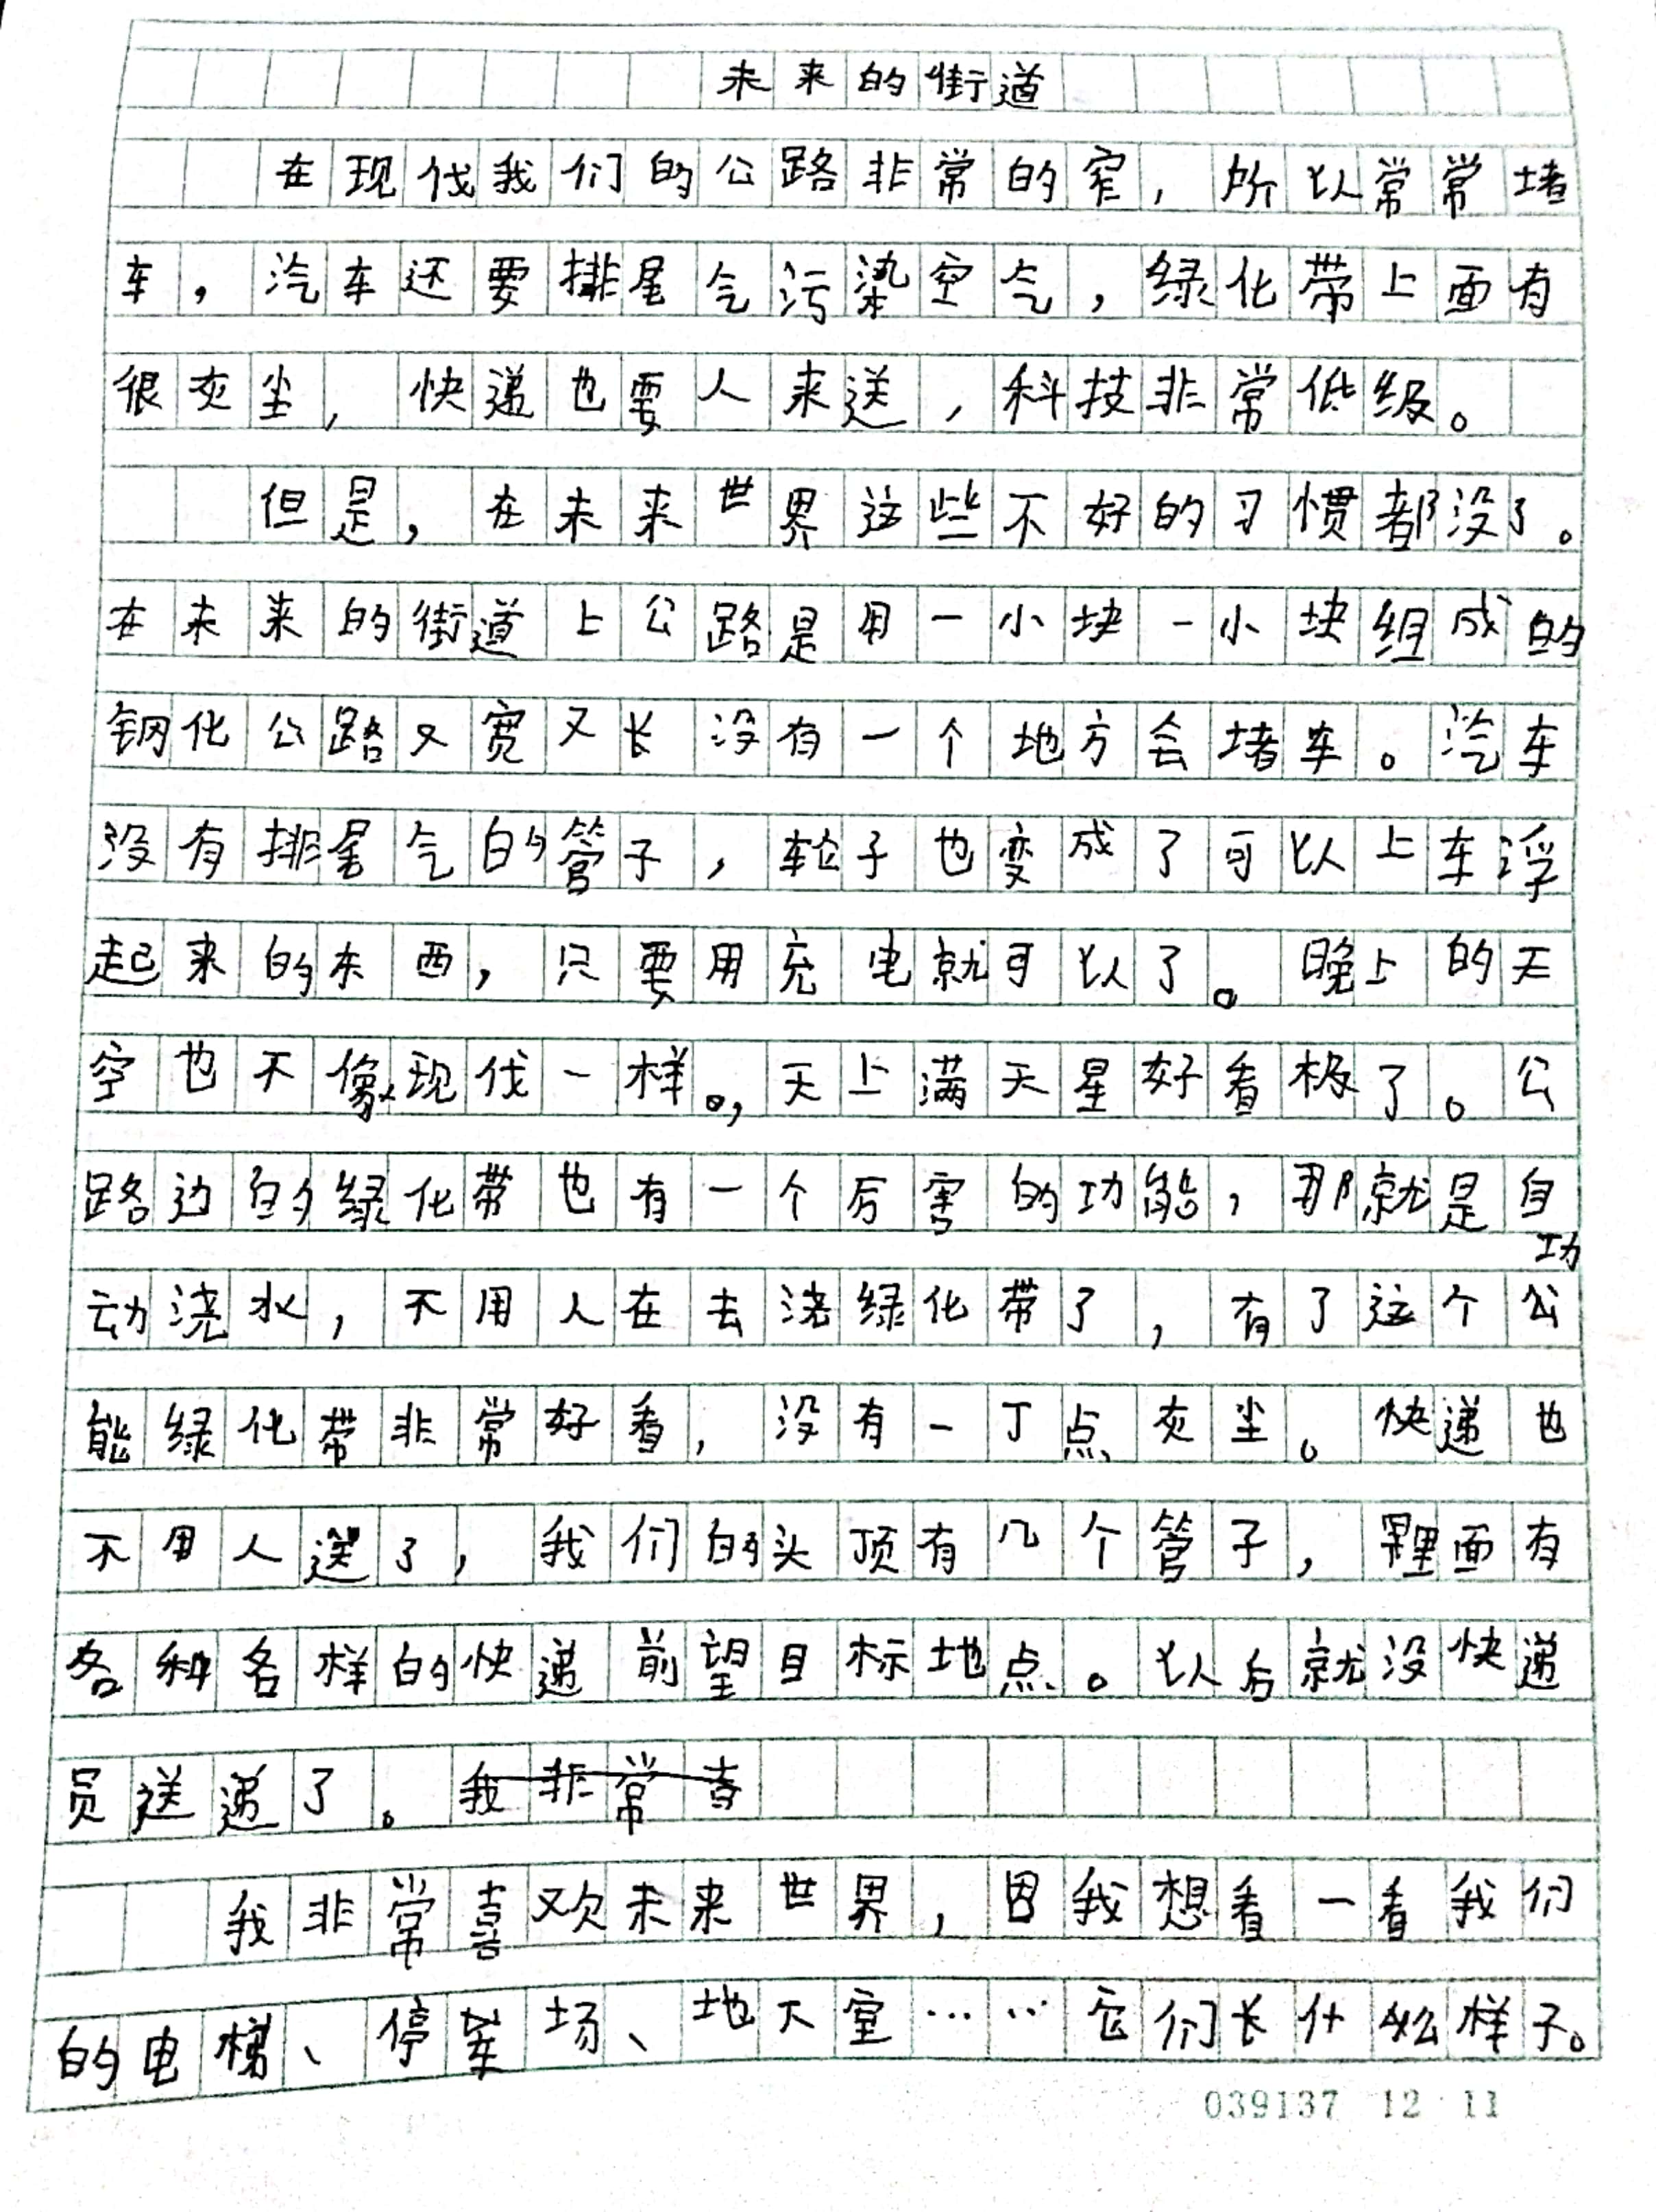 未来的街道
在现代我们的公路非常的窄，所以常常堵
车，汽车还要排尾气污染空气，绿化带上面有
很灰尘，快递也要人来送，科技非常低级。
但是，在未来世界这些不好的习惯都没了。
在未来的街道上公路是用一小块一小块组成的
钢化公路又宽又长没有一个地方会堵车。汽车
没有排尾气的管子，轮子也变成了可以上车浮
起来的东西，只要用充电就可以了。晚上的天
空也不像现代一样。，天上满天星好看极了。公
路边的绿化带也有一个厉害的功能，那就是自
动浇水，不用人在去浇绿化带了，有了这个功
能绿化带非常好看，没有一丁点灰尘。快递也
不用人送了，我们的头顶有几个管子，里面有
各种各样的快递前望目标地点。以后就没快递
员送递了。我非常喜
我非常喜欢未来世界，因我想看一看我们
的电梯、停车场、地下室……它们长什么样子。
039137 12 11